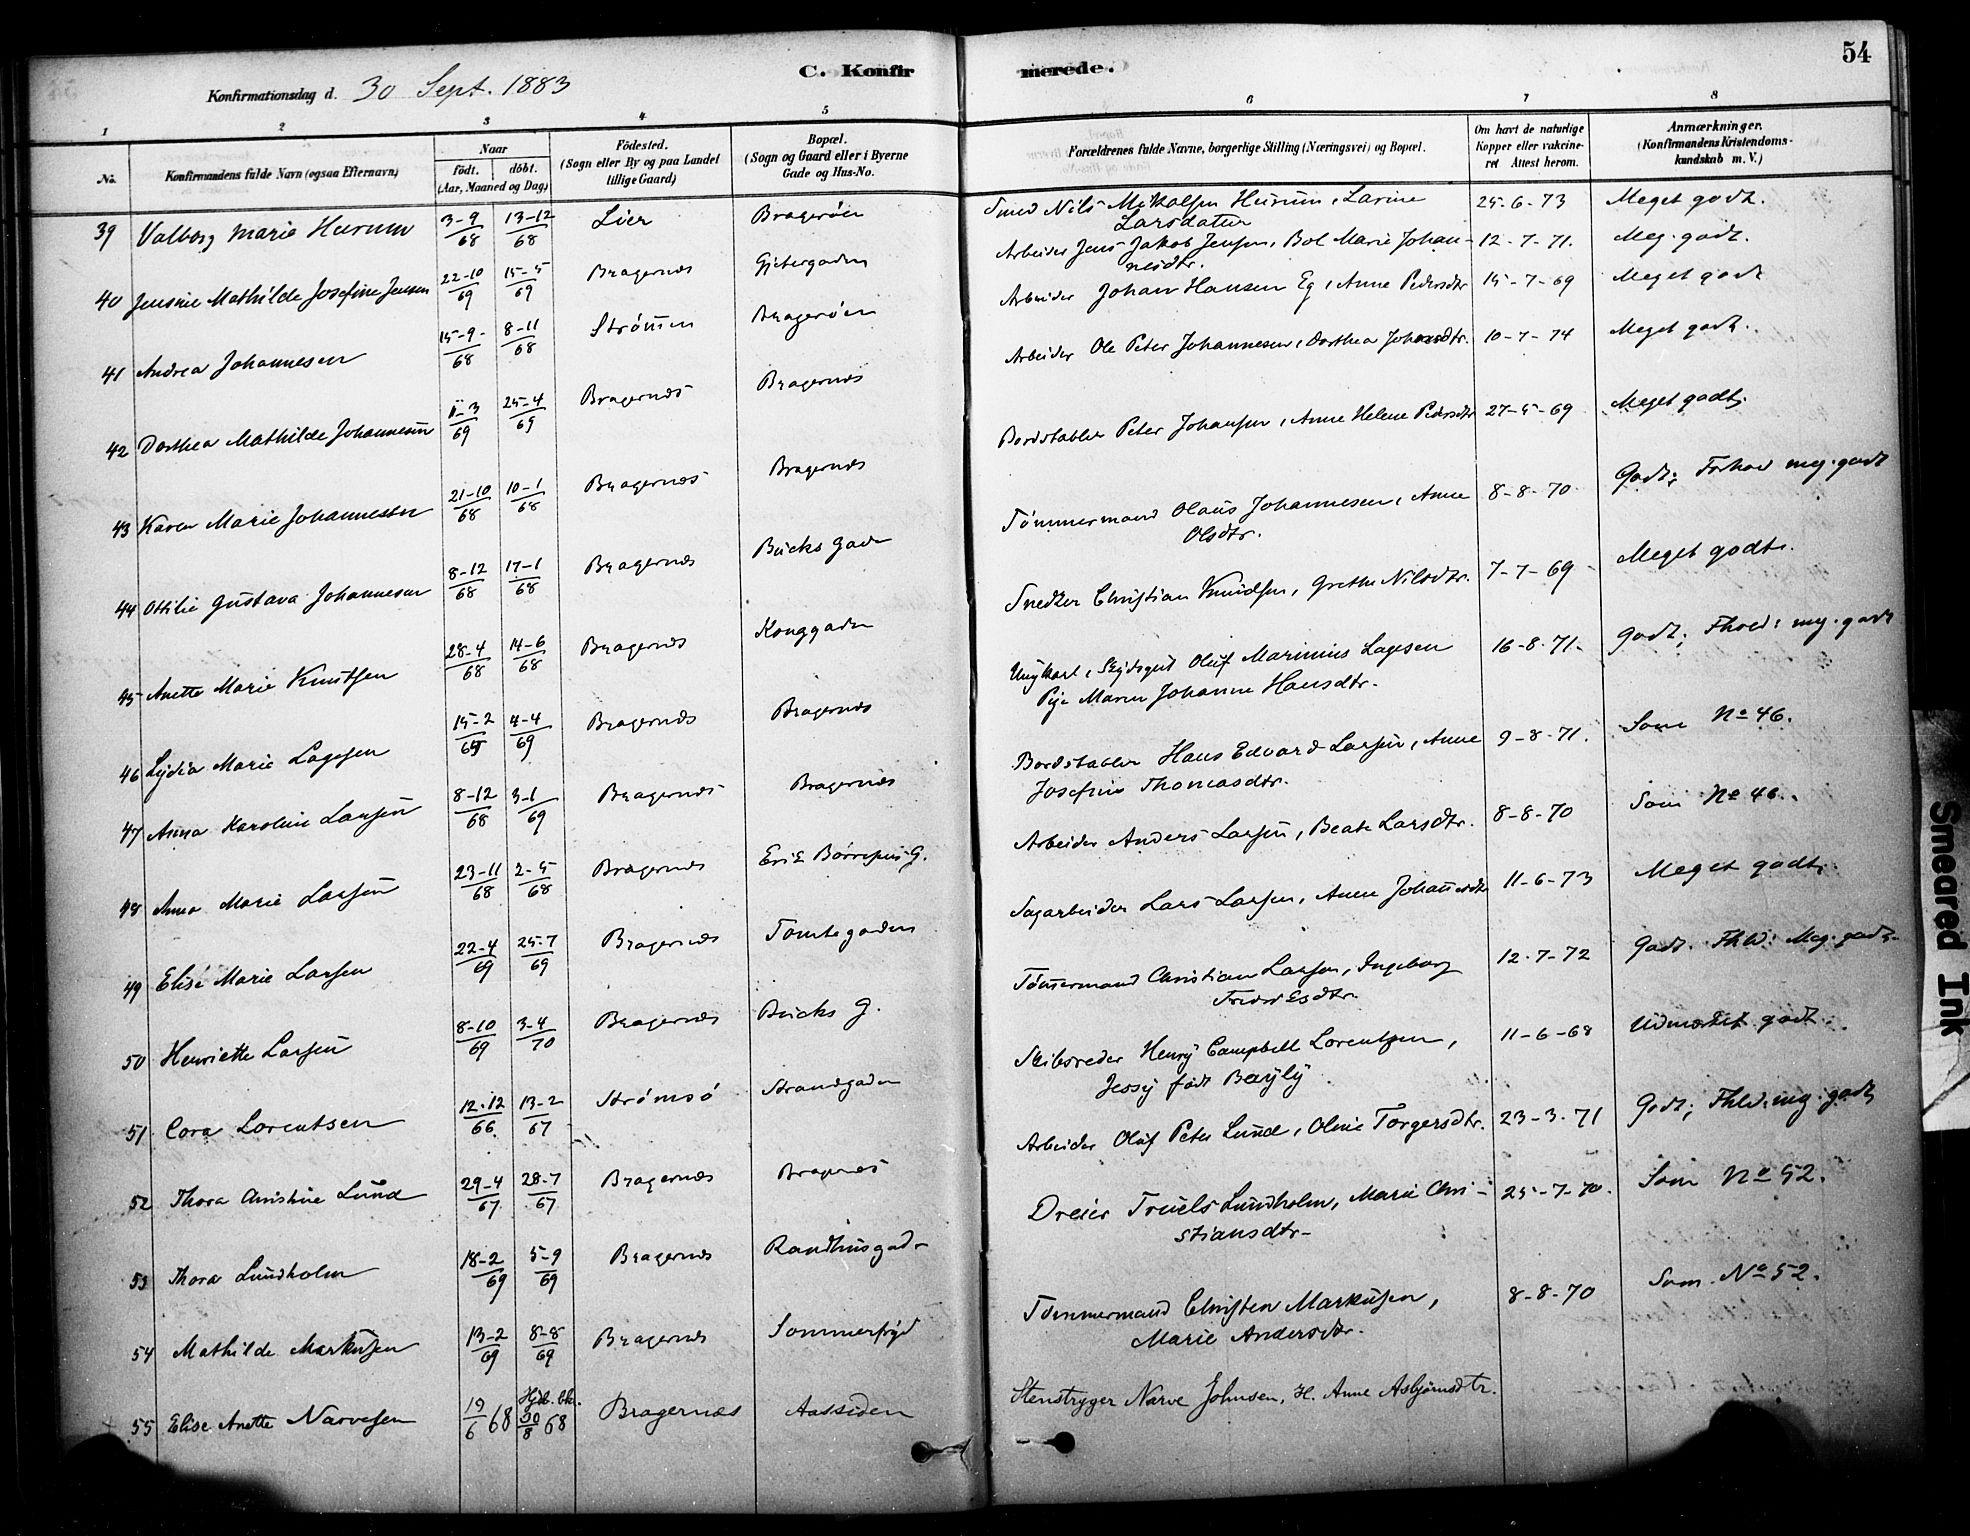 54
C. Konfirmerede.
Konfirmationsdag d. 30 Sept. 1883
1 2 3 4 5 6 7 8
No. Konfirmandens fulde Navn (ogsaa Efternavn) Naar Födt. döbt. (Aar, Maaned og Dag) Födested. (Sogn eller By og paa Landet tillige Gaard) Bopæl. (Sogn og Gaard eller i Byerne Gade og Hus-No. Forældrenes fulde Navne, borgerlige Stilling (Næringsvei) og Bopæl. Om havt de naturlige Kopper eller vakcineret Attest herom. Anmærkninger. (Konfirmandens Kristendomskundskab m. V.)
39 Valborg Marie Hurum 3-9/68 13-12/68 Lier Bragerøen Smed Nils Mikalsen Hurum, Larine Larsdatter 25-6-73 Meget godt.
40 Jensine Mathilde Josefine Jensen 22-10/69 15-5/69 Bragernæs Gjetergaden Arbeider Jens Jakob Jensen, Bol Marie Johannesdtr. 12-7-71. Meg. godt.
41 Andrea Johannesen 15-9-/68 8-11/68 Strömmen Bragerøen Arbeider Johan Hansen Eg, Anne Pedersdtr 15-7-69 Meget godt
42 Dorthea Mathilde Johannesen 3/69 25-4/69 Bragernæs Bragernæs Arbeider Ole Peter Johannesen, Dorthea Johansdtr. 10-7-74 Meget godt.
43 Karen Marie Johannessen 21-10/68 10-1/68 Bragernæs Bragernæs Bordstabler Peter Johansen, Anne Helene Pedersdtr 27-5-69 Meget godt.
44 Ottilie Gustava Johannesen 8-12/68 17-1/68 Bragernæs Bucks Gade Tömmermand Olaus Johannesen, Anne Olsdtr. 8-8-70 Godt; Forhold meg. godt
45 Anette Marie Knutsen 28-4/68 14-6/68 Bragernæs Konggaden Snedker Christian Knudsen, Grethe Nilsdtr. 7-7-69 Meget godt.
46 Lydia Marie Lagesen 15-2/69 4-4/69 Bragernæs Bragernæs Ungkarl, Skydsgut Oluf Marinius Lagesen Pige Maren Johanne Hansdtr. 16-8-71. Godt; Fhold: mg. godt
47 Anna Karoline Larsen 8-12/68 3-1/69 Bragernæs Bragernæs Bordstabler Hans Edvard Larsen, Anne Josefine Thomasdtr. 9-8-71. Som No 46.
48 Anna Marie Larsen 23-11/68 2-5/68 Bragernæs Erik Börresens G. Arbeider Anders Larsen, Beate Larsdtr. 8-8-70 Som No 46.
49 Elise Marie Larsen 22-4/69 25-7/69 Bragernæs Tomtegaden Sagarbeider Lars Larsen, Anne Johannesdtr 11-6-73 Meget godt.
50 Henriette Larsen 8-10/69 3-4/70 Bragernæs Bucks G. Tömmermand Christian Larsen, Ingeborg Fredriksdtr. 12-7-72 Godt. Fhld: Meg. godt.
51 Cora Lorentsen 12-12/66 13-2/67 Strömsö Strandgaden Skibsreder Henry Campbell Lorentzen, Jessy født Bayly 11-6-68 Udmærket godt.
52 Thora Christine Lund 29-4/67 28-7/67 Bragernæs Bragernæs Arbeider Oluf Peter Lund, Oline Torgersdtr. 23-3-71 Godt; Fhld: mg. godt
53 Thora Lundholm 18-2/69 5-9/69 Bragernæs Raadhusgade Dreier Truels Lundholm, Marie Christiansdtr- 25-7-70. Som No 52.
54 Mathilde Markusen 13-2/69 8-8/69 Bragernæs Sommerfryd Tömmermand Christen Markusen, Marie Andersdtr. 8-8-70 Som No 52.
55 Elise Anette Narvesen 19/6 68 Hjd. bk. 30/8 68 Bragernæs Aassiden Stenstryger Narve Johnsen, H. Anne Asbjörnsdtr.
Smeared Ink